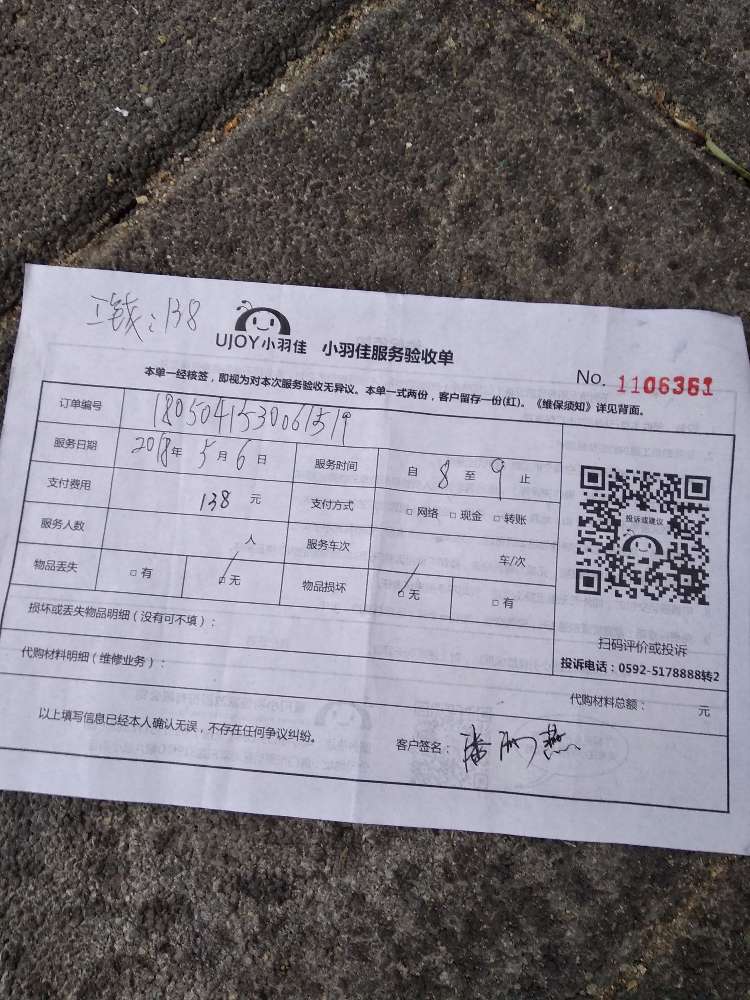 工钱：138
UJOY小羽佳 小羽佳服务验收单
No. 1106361
本单一经核签，即视为对本次服务验收无异议。本单一式两份，客户留存一份(红)。《维保须知》详见背面。
订单编号 1805041530061519
服务日期 2018年5月6日 服务时间 自8至9止
支付费用 138元 支付方式 □网络 □现金 □转账
服务人数 人 服务车次 车/次
物品丢失 □有 ☑无 物品损坏 ☑无 □有
投诉或建议
扫码评价或投诉
投诉电话：0592-5178888转2
损坏或丢失物品明细（没有可不填）：
代购材料明细（维修业务）：
代购材料总额： 元
以上填写信息已经本人确认无误，不存在任何争议纠纷。
客户签名：潘